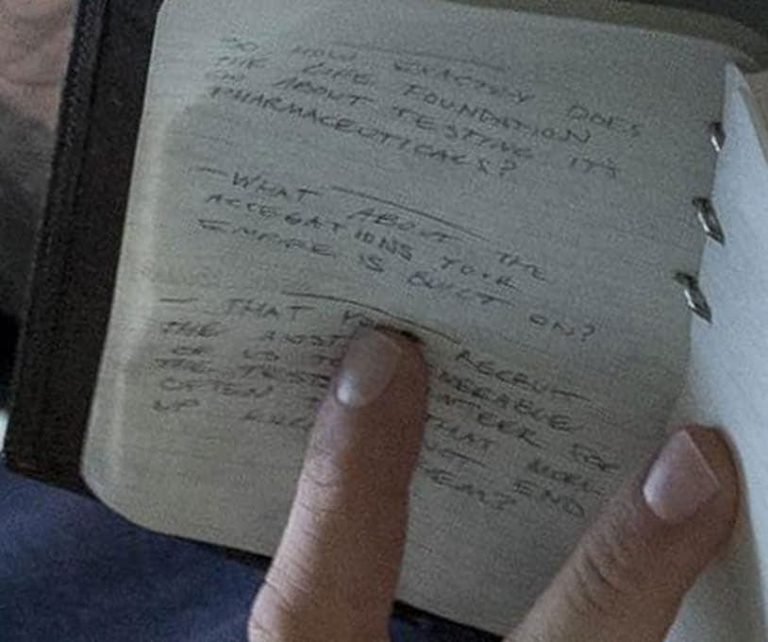 SO HOW EXACTLY DOES
THE LIFE FOUNDATION
GO ABOUT TESTING ITS
PHARMACEUTICALS?
— WHAT ABOUT THE
ALLEGATIONS YOUR
EMPIRE IS BUILT ON?
— THAT RECRUIT
THE MOST
OF US TO
THE TESTS FOR
OFTEN THAT MORE
UP END
THEM?